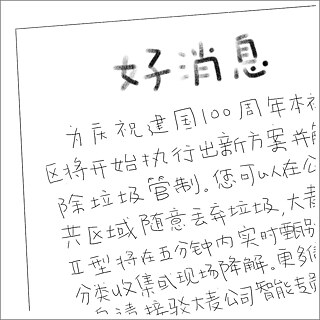 好消息
为庆祝建国100周年本社
区将开始执行出新方案并
除垃圾管制。您可以在公
共区域随意丢弃垃圾,大麦
II型将在五分钟内实时甄别
分类收集或现场降解。更多
请接驳大麦公司智能专员